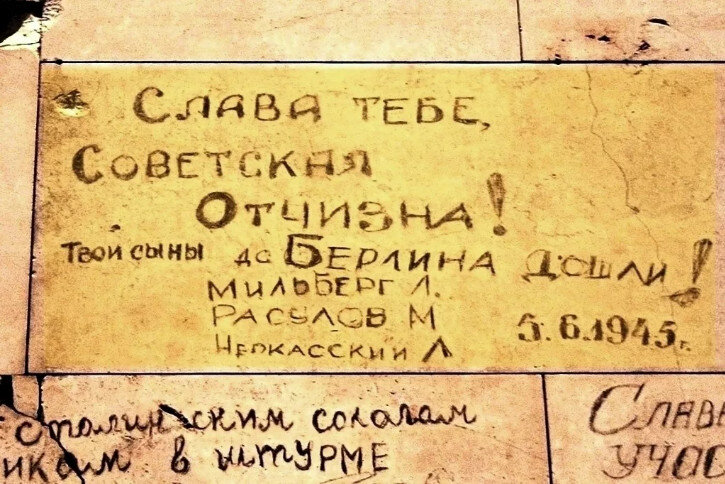 Слава тебе,
Советская
Отчизна!
Твои сыны до Берлина дошли!
Мильберг Л.
Расулов М
Черкасский Л
5.6.1945г.
Сталинским соколам
икам в штурме
Слав
учас